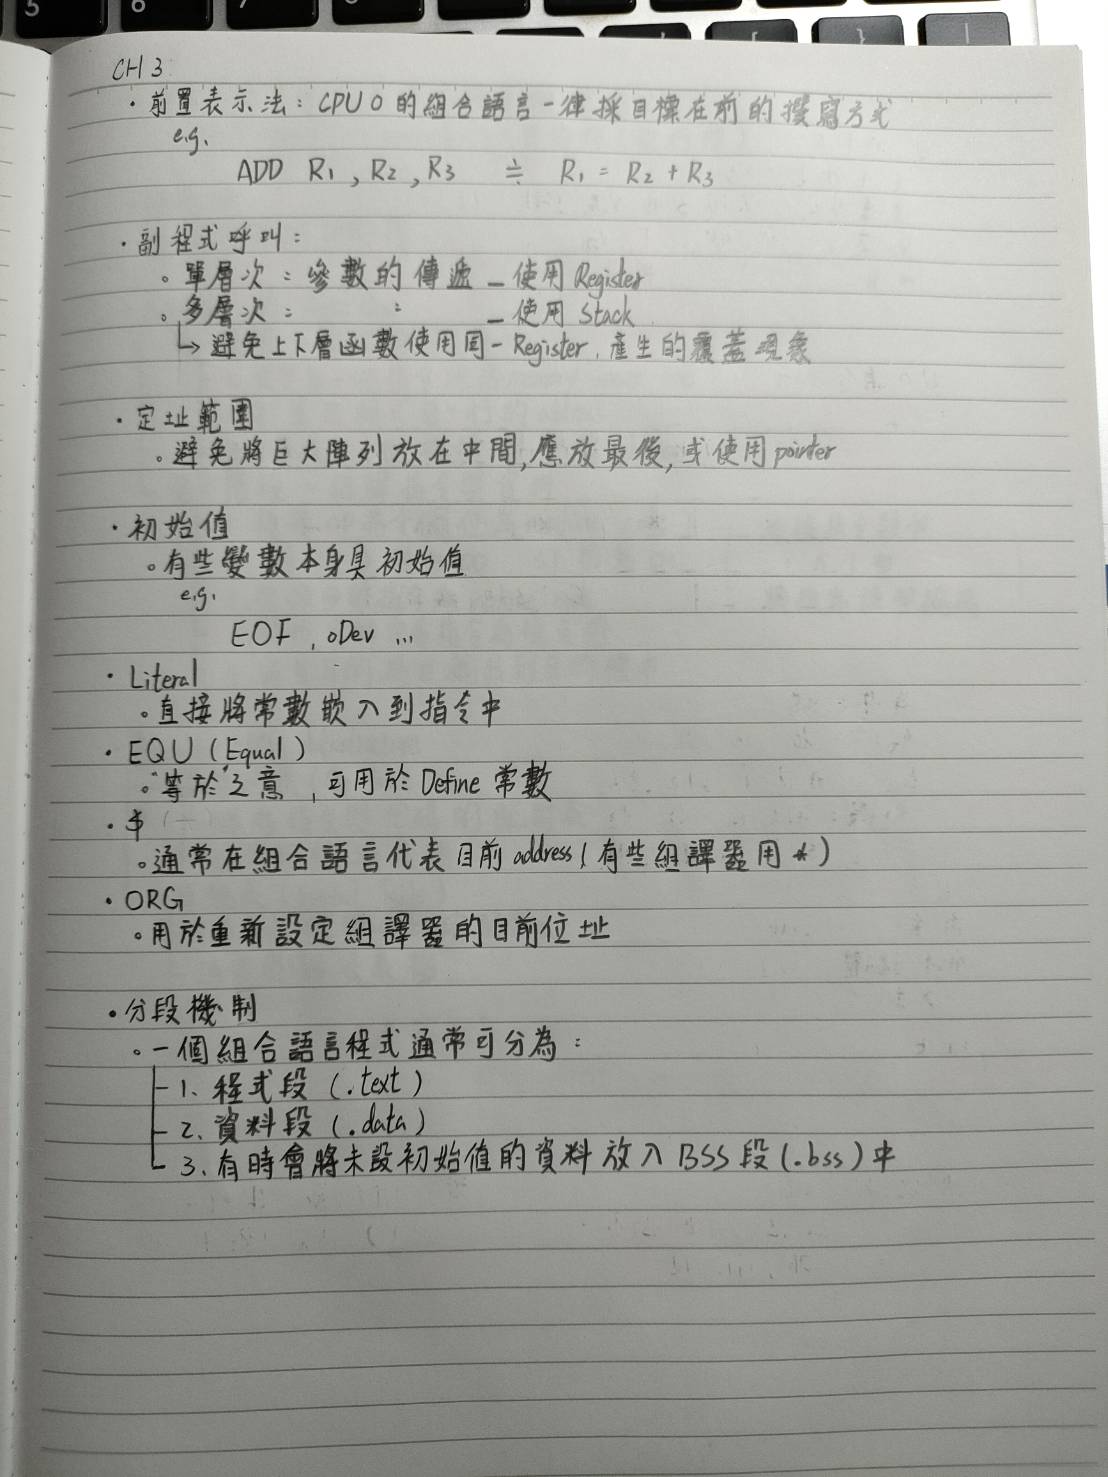 CH 3
・前置表示法：CPU0的組合語言一律採目標在前的撰寫方式
e.g.
ADD R1, R2, R3 ≒ R1 = R2 + R3
・副程式呼叫：
。單層次：參數的傳遞 — 使用 Register
。多層次： 〃 — 使用 Stack
↳ 避免上下層函數使用同一Register, 產生的覆蓋現象
・定址範圍
。避免將巨大陣列放在中間, 應放最後, 或使用 pointer
・初始值
。有些變數本身具初始值
e.g.
EOF , oDev ...
・Literal
。直接將常數嵌入到指令中
・EQU (Equal)
。"等於"之意 , 可用於 Define 常數
・$
。通常在組合語言代表目前 address (有些組譯器用 *)
・ORG
。用於重新設定組譯器的目前位址
・分段機制
。一個組合語言程式通常可分為：
1. 程式段 (.text)
2. 資料段 (.data)
3. 有時會將未設初始值的資料放入 BSS 段 (.bss) 中